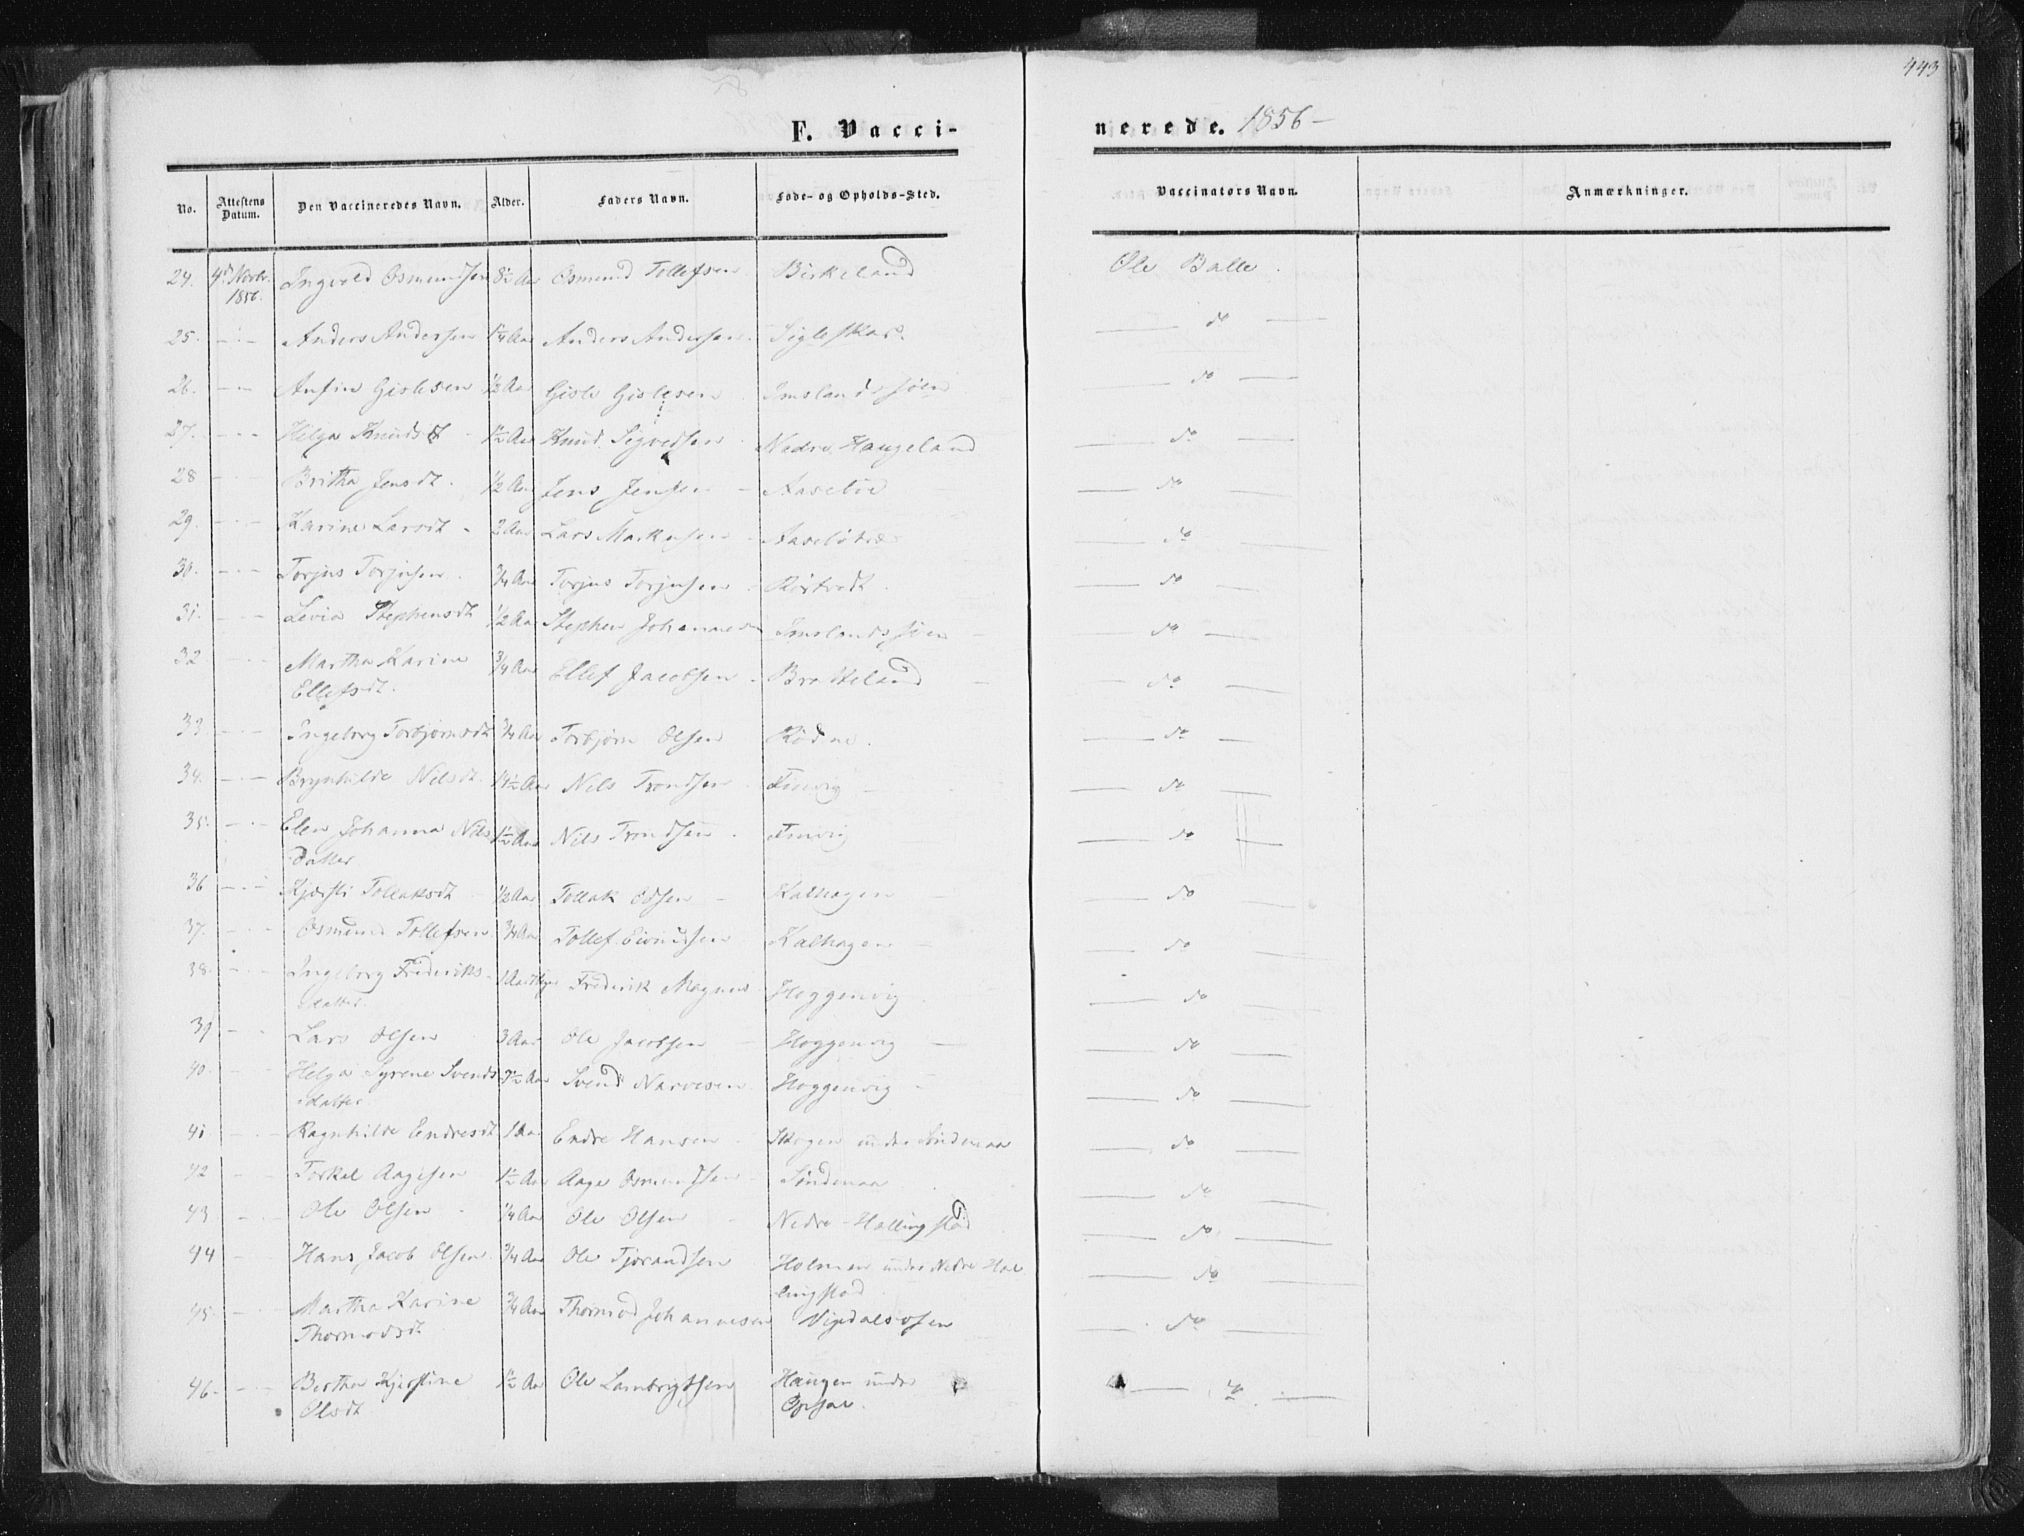 443
F. Vacci-
nerede. 1856-
No. Attestens Datum. Den Vaccineredes Navn. Alder. Faders Navn. Føde- og Opholds-Sted. Vaccinators Navn. Anmærkninger.
24. 4d Novbr. 1856. Ingvold Osmundsen 8½ Aar Osmund Tollefsen Birkeland Ole Balle.
25. Anders Andersen 1¼ Aar Anders Andersen Sigleskar. — do —
26. Anfin Gislesen ½ Aar Gisle Gislesen Imslandssøen — do —
27. Helga Knudsdt 1½ Aar Knud Sigvedsen Nedre Haugeland — do —
28 Britha Jensdt. ½ Aar Jens Jensen Aasebøe — do —
29. Karine Larsdt 2 Aar Lars Markusen — do —
30. Torjus Torjusen ¾ Aar Torjus Torjusen Røstvedt. — do —
31. Levia Stephensdt ½ Aar Stephen Johannesen Imslandssøen — do —
32 Martha Karine Ellefsdt. ¾ Aar Ellef Jacobsen Bratteland — do —
33. Ingeborg Torbjørnsdt ¾ Aar Torbjørn Olsen Rødne. — do —
34. Brynhilde Nilsdt. 4½ Aar Nils Trondsen Finvig — do —
35. Elen Johanna Nils datter 1½ Aar Nils Trondsen Finvig — do —
36 Kjersti Tollaksdt ½ Aar Tollak Kalhagen — do —
37. Osmund Tollefsen ¾ Aar Tollef Eivindsen Kalhagen — do —
38. Ingeborg Frederiks- datter. Frederik Magnus Hoggenvig — do —
39 Lars Olsen 3 Aar Ole Jacobsen Hoggenvig — do —
40. Helga Syrene Svends datter Svend Narvesen Hoggenvig — do —
41 Ragnhilde Endresdt 1 Aar Endre Hansen Skogen under Søndenaa — do —
42 Torkel Aagesen 1½ Aar Aage Osmundsen Søndenaa — do —
43 Ole Olsen ¼ Aar Ole Olsen Nedre-Hallingstad — do —
44 Hans Jacob Olsen ¾ Aar Ole Tjorandsen Holmen under Nedre Hal lingstad. — do —
45. Martha Karine Thormodsdt ¾ Aar Thormod Johannesen Vigdalsosen — do —
46. Bertha Kjerstine Olsdt 1½ Aar Ole Lambregtsen Haugen under Opsal. — do —